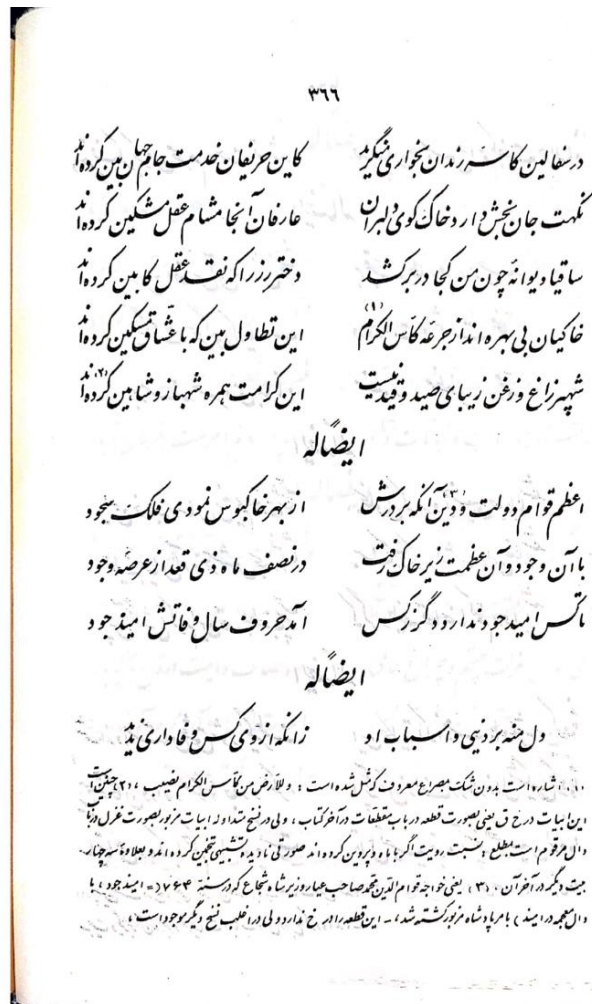 ۳۶۶
در سفالین کاسهٔ رندان بخواری منگرید کاین حریفان خدمت جام جهان بین کرده‌اند
نکهت جان بخش دارد خاک کوی دلبران عارفان آنجا مشام عقل مشکین کرده‌اند
ساقیا دیوانهٔ چون من کجا در بر کشد دختر رز را که نقد عقل کابین کرده‌اند
خاکیان بی بهره‌اند از جرعهٔ کأس الکرام (۱) این تطاول بین که با عشّاق مسکین کرده‌اند
شهپر زاغ و زغن زیبای صید و قید نیست این کرامت همره شهباز و شاهین کرده‌اند (۲)
ایضاً له
اعظم قوام دولت و دین (۳) آنکه بر درش از بهر خاکبوس نمودی فلک سجود
با آن وجود و آن عظمت زیر خاک رفت در نصف ماه ذی قعد از عرصهٔ وجود
تا کس امید جود ندارد دگر ز کس آمد حروف سال وفاتش امیذ جود
ایضاً له
دل منه بر دنیی و اسباب او زانکه از وی کس وفاداری ندید
(۱) اشاره است بدون شک بمصراع معروف که مثل شده است : و للأرض من کأس الکرام نصیب ، (۲) چنین است
این ابیات در خ ق یعنی بصورت قطعه در باب مقطعات در آخر کتاب ، ولی در نسخ متداوله ابیات مزبور بصورت غزل در باب
دال مرقوم است بمطلع : نسبت رویت اگر با ماه و پروین کرده‌اند صورتی نادیده تشبیهی بتخمین کرده‌اند و بعلاوهٔ سه چهار
بیت دیگر در آخر آن ، (۳) یعنی خواجه قوام الدین محمد صاحب عیار وزیر شاه شجاع که در سنهٔ ۷۶۴ (= امیذ جود ، با
دال معجمه در امیذ ) بامر پادشاه مزبور کشته شد ، ـ این قطعه را در خ ندارد ولی در اغلب نسخ دیگر موجود است ،